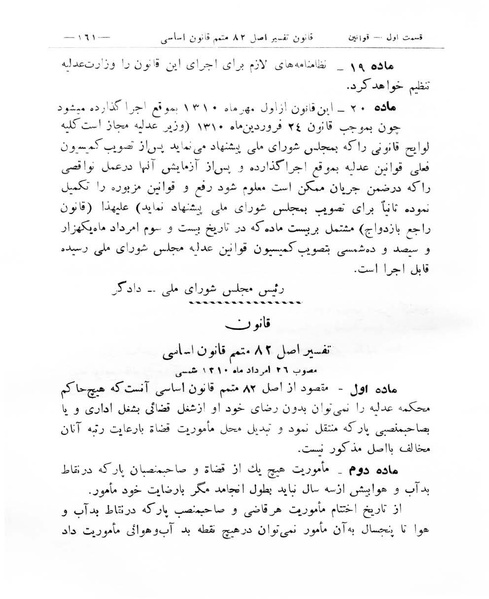 قسمت اول — قوانین
قانون تفسیر اصل ۸۲ متمم قانون اساسی
— ۱۶۱ —
ماده ۱۹ ـ نظامنامه‌های لازم برای اجرای این قانون را وزارت عدلیه
تنظیم خواهد کرد.
ماده ۲۰ ـ این قانون از اول مهر ماه ۱۳۱۰ بموقع اجرا گذارده میشود
چون بموجب قانون ۲۴ فروردین ماه ۱۳۱۰ (وزیر عدلیه مجاز است کلیه
لوایح قانونی را که بمجلس شورای ملی پیشنهاد می‌نماید پس از تصویب کمیسیون
فعلی قوانین عدلیه بموقع اجرا گذارده و پس از آزمایش آنها در عمل نواقصی
را که در ضمن جریان ممکن است معلوم شود رفع و قوانین مزبوره را تکمیل
نموده ثانیاً برای تصویب بمجلس شورای ملی پیشنهاد نماید) علیهذا (قانون
راجع بازدواج) مشتمل بر بیست ماده که در تاریخ بیست و سوم امرداد ماه یکهزار
و سیصد و ده شمسی بتصویب کمیسیون قوانین عدلیه مجلس شورای ملی رسیده
قابل اجرا است.
رئیس مجلس شورای ملی ـ دادگر
قانون
تفسیر اصل ۸۲ متمم قانون اساسی
مصوب ۲۶ امرداد ماه ۱۳۱۰ شمسی
ماده اول ـ مقصود از اصل ۸۲ متمم قانون اساسی آنست که هیچ حاکم
محکمه عدلیه را نمی‌توان بدون رضای خود او از شغل قضائی بشغل اداری و یا
بصاحبمنصبی پارکه منتقل نمود و تبدیل محل مأموریت قضاة با رعایت رتبه آنان
مخالف با اصل مذکور نیست.
ماده دوم ـ مأموریت هیچ یك از قضاة و صاحبمنصبان پارکه در نقاط
بد آب و هوا بیش از سه سال نباید بطول انجامد مگر با رضایت خود مأمور.
از تاریخ اختتام مأموریت هر قاضی و صاحبمنصب پارکه در نقاط بد آب و
هوا تا پنجسال به آن مأمور نمی‌توان در هیچ نقطه بد آب و هوائی مأموریت داد